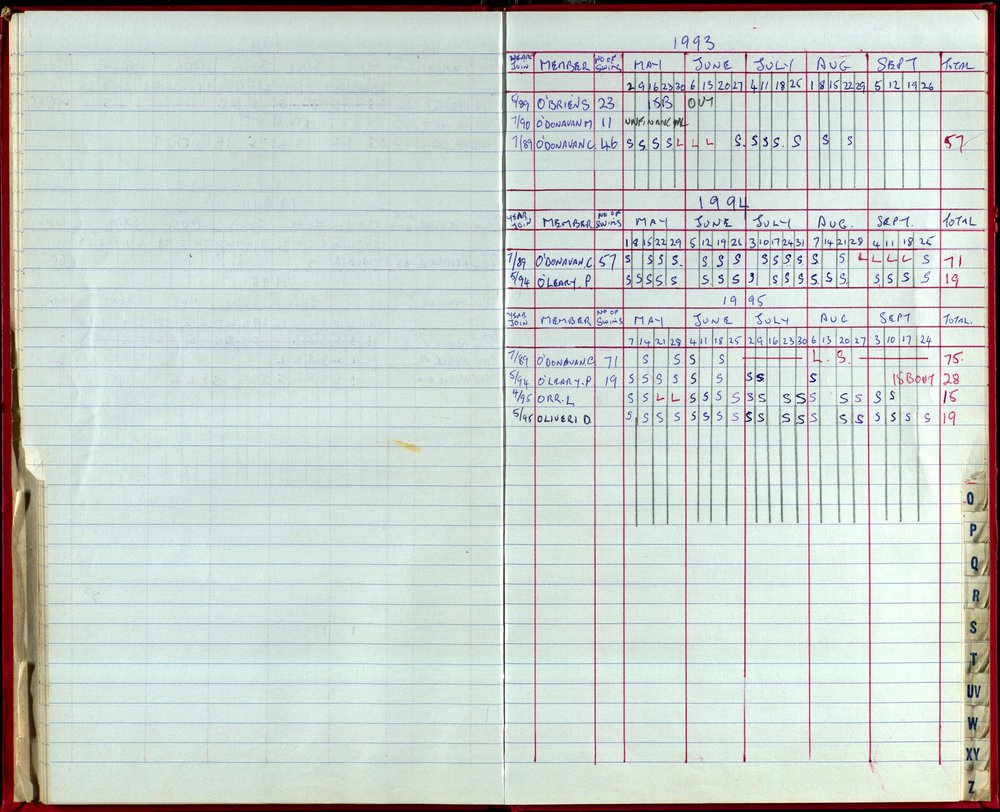 1993
YEAR JOIN MEMBER NO OF SWIMS MAY JUNE JULY AUG SEPT TOTAL
2 9 16 23 30 6 13 20 27 4 11 18 25 1 8 15 22 29 5 12 19 26
5/89 O'BRIEN S 23 ISB OUT
7/90 O'DONAVAN M 11 UNFINANCIAL
7/89 O'DONAVAN C. 46 S S S S L L L S. S S S. S S S 57
1994
YEAR JOIN MEMBER NO OF SWIMS MAY JUNE JULY AUG. SEPT. TOTAL
1 8 15 22 29 5 12 19 26 3 10 17 24 31 7 14 21 28 4 11 18 25
7/89 O'DONAVAN.C. 57 S S S S. S S S S S S S S S L L L L S 71
5/94 O'LEARY. P S S S S S S S S S S S S S S S S S S S S S 19
1995
YEAR JOIN MEMBER NO OF SWIMS MAY JUNE JULY AUG SEPT TOTAL.
7 14 21 28 4 11 18 25 2 9 16 23 30 6 13 20 27 3 10 17 24
7/89 O'DONAVAN.C. 71 S S S S L S. 75.
5/94 O'LEARY. P 19 S S S S S S S S S ISB OUT 28
4/95 ORR. L S S L L S S S S S S S S S S S S S 15
5/95 OLIVERI D. S S S S S S S S S S S S S S S S S S S 19
O
P
Q
R
S
T
UV
W
XY
Z